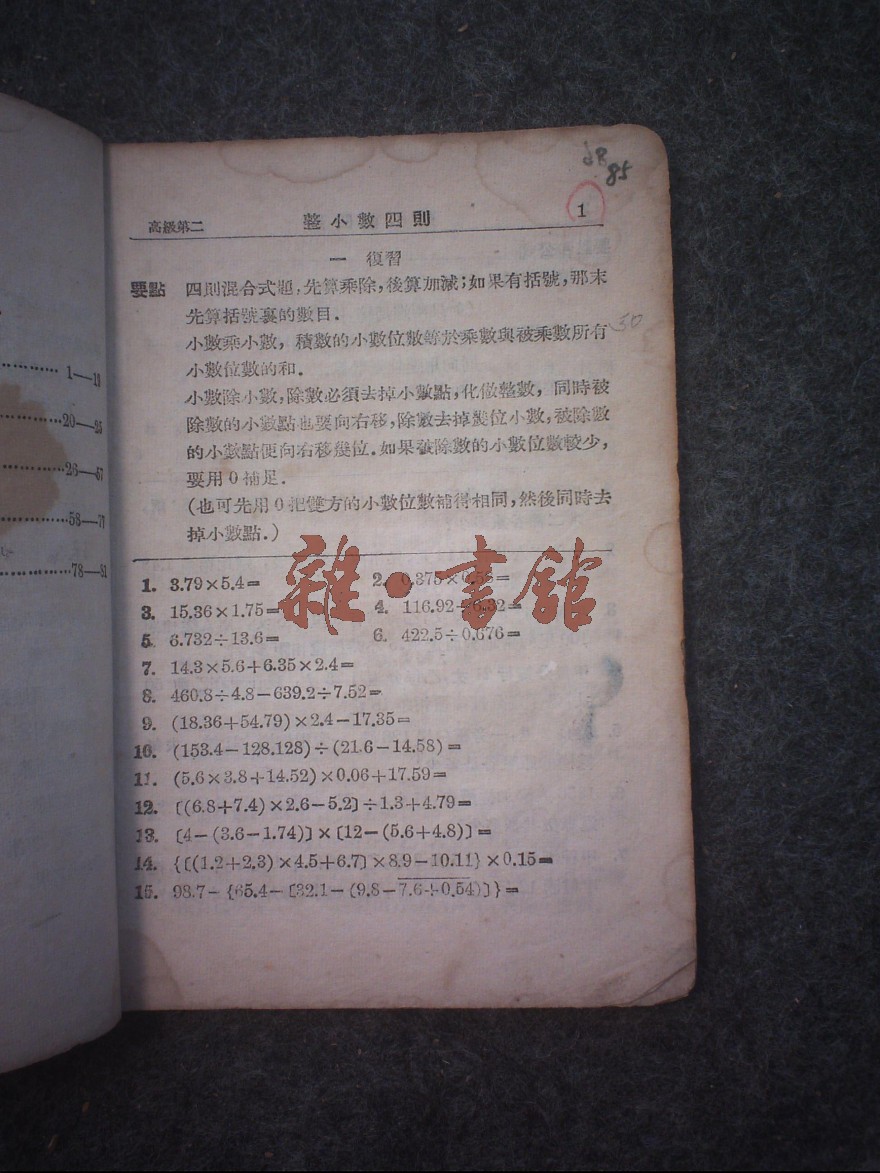 1—19
20—25
26—57
58—77
78—81
85
高級第二 整小數四則 1
一 復習
要點 四則混合式題,先算乘除,後算加減;如果有括號,那末
先算括號裏的數目.
小數乘小數,積數的小數位數等於乘數與被乘數所有
小數位數的和.
小數除小數,除數必須去掉小數點,化做整數,同時被
除數的小數點也要向右移,除數去掉幾位小數,被除數
的小數點便向右移幾位.如果被除數的小數位數較少,
要用0補足.
(也可先用0把雙方的小數位數補得相同,然後同時去
掉小數點.)
1. 3.79×5.4= 2. 0.375×0.56=
3. 15.36×1.75= 4. 116.92÷6.32=
5. 6.732÷13.6= 6. 422.5÷0.676=
7. 14.3×5.6+6.35×2.4=
8. 460.8÷4.8-639.2÷7.52=
9. (18.36+54.79)×2.4-17.35=
10. (153.4-128.128)÷(21.6-14.58)=
11. (5.6×3.8+14.52)×0.06+17.59=
12. 〔(6.8+7.4)×2.6-5.2〕÷1.3+4.79=
13. 〔4-(3.6-1.74)〕×〔12-(5.6+4.8)〕=
14. {〔(1.2+2.3)×4.5+6.7〕×8.9-10.11}×0.15=
15. 98.7-{65.4-〔32.1-(9.8-7.6+0.54)〕}=
雜·書館